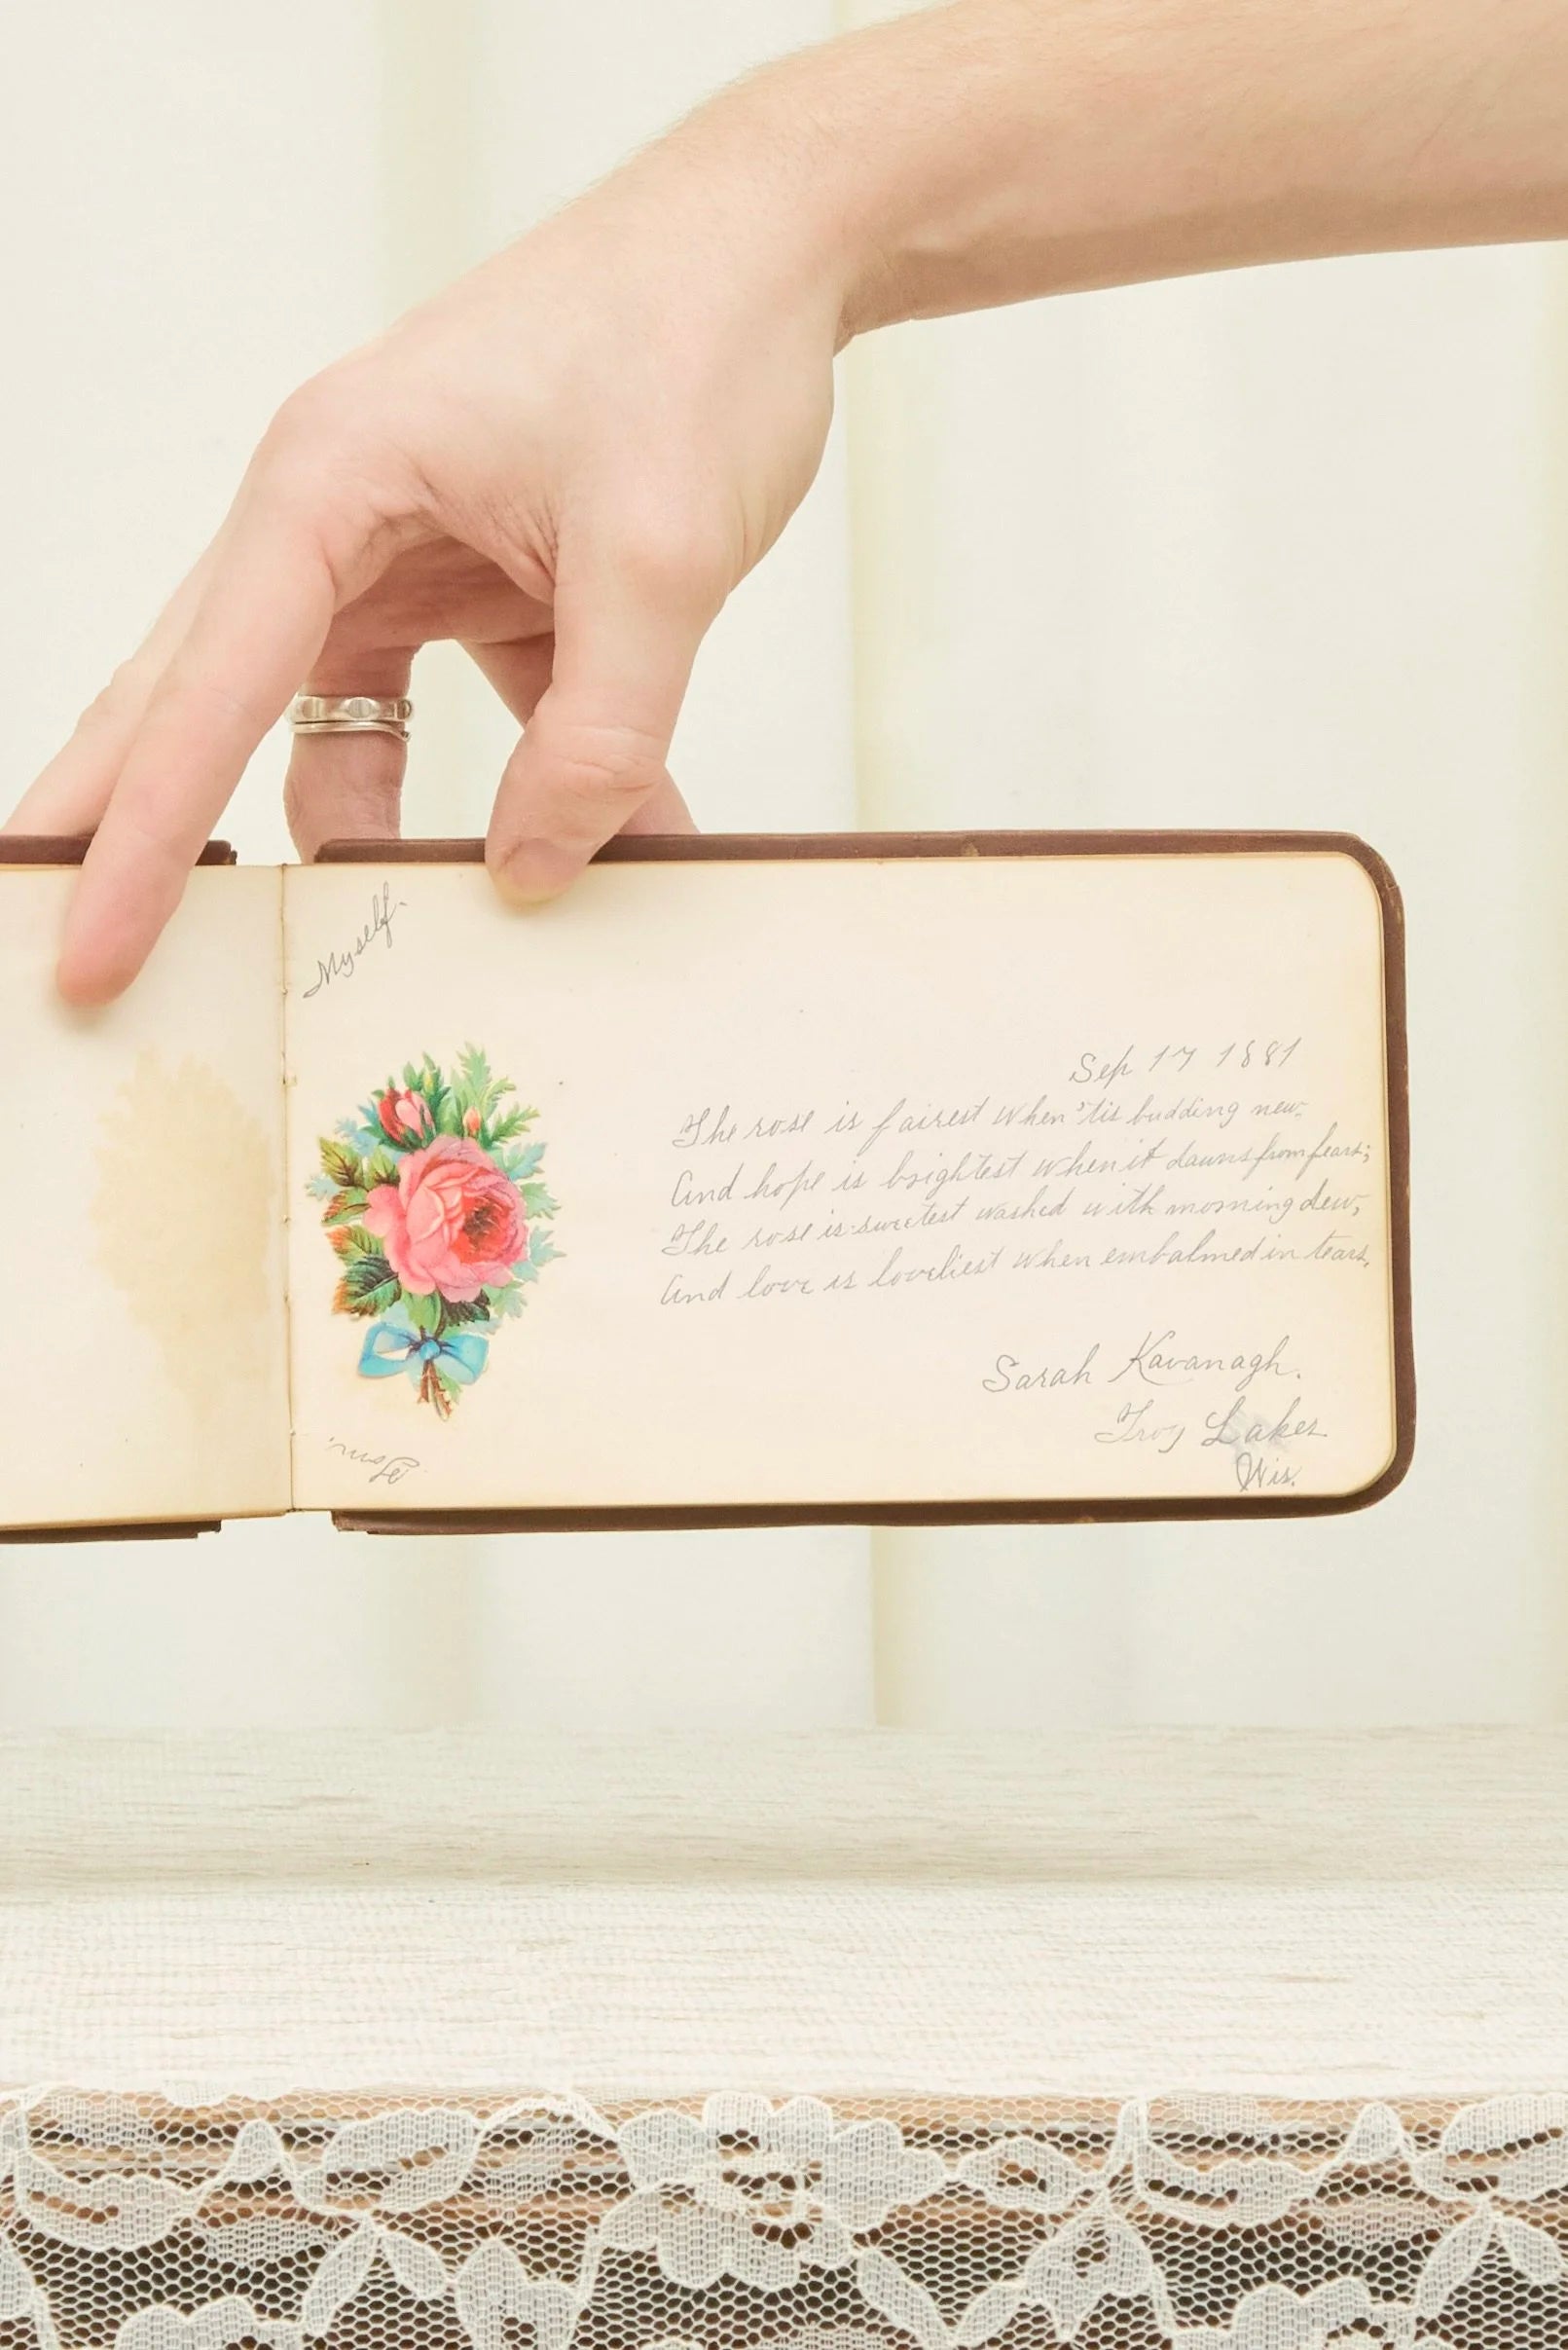 Myself.
Sep 17 1881
The rose is fairest when 'tis budding new.
And hope is brightest when it dawns from fears;
The rose is sweetest washed with morning dew,
And love is loveliest when embalmed in tears.
Sarah Kavanagh.
Troy Lakes
Wis.